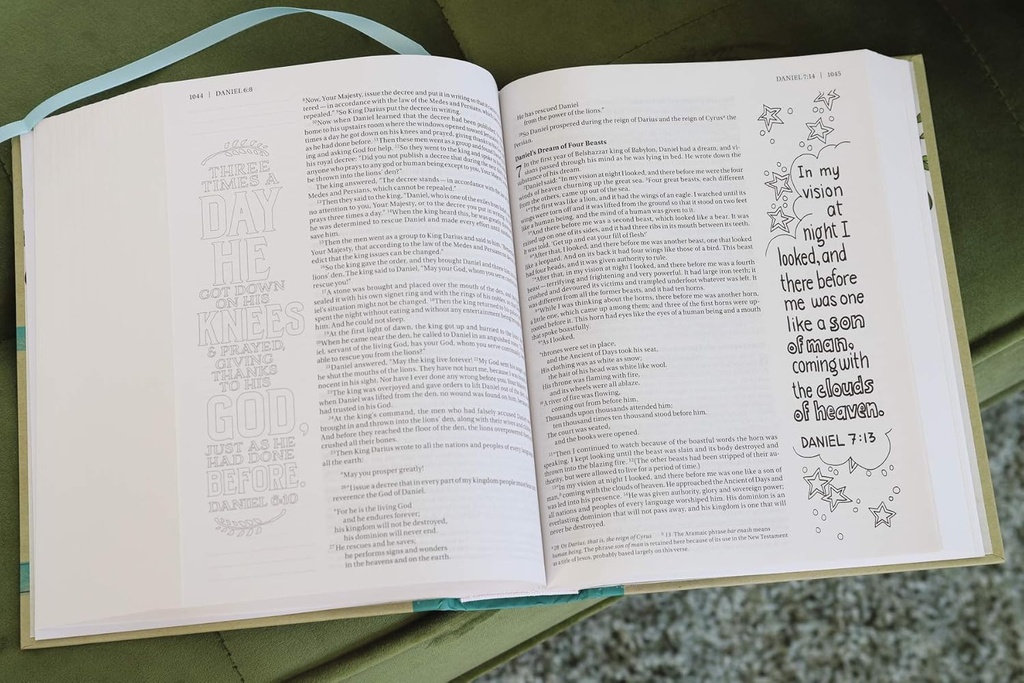 1044 | DANIEL 6:8
THREE
TIMES A
DAY
HE
GOT DOWN
ON HIS
KNEES
& PRAYED,
GIVING
THANKS
TO HIS
GOD,
JUST AS HE
HAD DONE
BEFORE.
DANIEL 6:10
⁸Now, Your Majesty, issue the decree and put it in writing so that it
tered — in accordance with the law of the Medes and Persians, which
repealed." ⁹So King Darius put the decree in writing.
¹⁰Now when Daniel learned that the decree had been published,
home to his upstairs room where the windows opened toward
times a day he got down on his knees and prayed, giving thanks
as he had done before. ¹¹Then these men went as a group and found
ing and asking God for help. ¹²So they went to the king and spoke
his royal decree: "Did you not publish a decree that during the
anyone who prays to any god or human being except to you, Your
be thrown into the lions' den?"
The king answered, "The decree stands — in accordance with the
Medes and Persians, which cannot be repealed."
¹³Then they said to the king, "Daniel, who is one of the exiles
no attention to you, Your Majesty, or to the decree you put in
prays three times a day." ¹⁴When the king heard this, he was
he was determined to rescue Daniel and made every effort until
save him.
¹⁵Then the men went as a group to King Darius and said to him,
Your Majesty, that according to the law of the Medes and Persians
edict that the king issues can be changed."
¹⁶So the king gave the order, and they brought Daniel and threw
lions' den. The king said to Daniel, "May your God, whom you serve
rescue you!"
¹⁷A stone was brought and placed over the mouth of the den, and
sealed it with his own signet ring and with the rings of his nobles,
iel's situation might not be changed. ¹⁸Then the king returned to his
spent the night without eating and without any entertainment being
him. And he could not sleep.
¹⁹At the first light of dawn, the king got up and hurried to the
²⁰When he came near the den, he called to Daniel in an anguished
iel, servant of the living God, has your God, whom you serve
able to rescue you from the lions?"
²¹Daniel answered, "May the king live forever! ²²My God sent
he shut the mouths of the lions. They have not hurt me, because
nocent in his sight. Nor have I ever done any wrong before you, Your
²³The king was overjoyed and gave orders to lift Daniel out of the
when Daniel was lifted from the den, no wound was found on him,
had trusted in his God.
²⁴At the king's command, the men who had falsely accused
brought in and thrown into the lions' den, along with their wives and
And before they reached the floor of the den, the lions overpowered
crushed all their bones.
²⁵Then King Darius wrote to all the nations and peoples of every
all the earth:
"May you prosper greatly!
²⁶"I issue a decree that in every part of my kingdom people must
reverence the God of Daniel.
"For he is the living God
and he endures forever;
his kingdom will not be destroyed,
his dominion will never end.
²⁷He rescues and he saves;
he performs signs and wonders
in the heavens and on the earth.
DANIEL 7:14 | 1045
He has rescued Daniel
from the power of the lions."
²⁸So Daniel prospered during the reign of Darius and the reign of Cyrus the
Persian.
Daniel's Dream of Four Beasts
7 In the first year of Belshazzar king of Babylon, Daniel had a dream, and vi-
sions passed through his mind as he was lying in bed. He wrote down the
substance of his dream.
²Daniel said: "In my vision at night I looked, and there before me were the four
winds of heaven churning up the great sea. ³Four great beasts, each different
from the others, came up out of the sea.
⁴"The first was like a lion, and it had the wings of an eagle. I watched until its
wings were torn off and it was lifted from the ground so that it stood on two feet
like a human being, and the mind of a human was given to it.
⁵"And there before me was a second beast, which looked like a bear. It was
raised up on one of its sides, and it had three ribs in its mouth between its teeth.
It was told, 'Get up and eat your fill of flesh!'
⁶"After that, I looked, and there before me was another beast, one that looked
like a leopard. And on its back it had four wings like those of a bird. This beast
had four heads, and it was given authority to rule.
⁷"After that, in my vision at night I looked, and there before me was a fourth
beast — terrifying and frightening and very powerful. It had large iron teeth; it
crushed and devoured its victims and trampled underfoot whatever was left. It
was different from all the former beasts, and it had ten horns.
⁸"While I was thinking about the horns, there before me was another horn,
a little one, which came up among them; and three of the first horns were up-
rooted before it. This horn had eyes like the eyes of a human being and a mouth
that spoke boastfully.
⁹"As I looked,
"thrones were set in place,
and the Ancient of Days took his seat.
His clothing was as white as snow;
the hair of his head was white like wool.
His throne was flaming with fire,
and its wheels were all ablaze.
¹⁰A river of fire was flowing,
coming out from before him.
Thousands upon thousands attended him;
ten thousand times ten thousand stood before him.
The court was seated,
and the books were opened.
¹¹"Then I continued to watch because of the boastful words the horn was
speaking. I kept looking until the beast was slain and its body destroyed and
thrown into the blazing fire. ¹²(The other beasts had been stripped of their au-
thority, but were allowed to live for a period of time.)
¹³"In my vision at night I looked, and there before me was one like a son of
man, coming with the clouds of heaven. He approached the Ancient of Days and
was led into his presence. ¹⁴He was given authority, glory and sovereign power;
all nations and peoples of every language worshiped him. His dominion is an
everlasting dominion that will not pass away, and his kingdom is one that will
never be destroyed.
28 Or Darius, that is, the reign of Cyrus 13 The Aramaic phrase bar enash means
human being. The phrase son of man is retained here because of its use in the New Testament
as a title of Jesus, probably based largely on this verse.
In my
vision
at
night I
looked, and
there before
me was one
like a son
of man,
coming with
the clouds
of heaven.
DANIEL 7:13